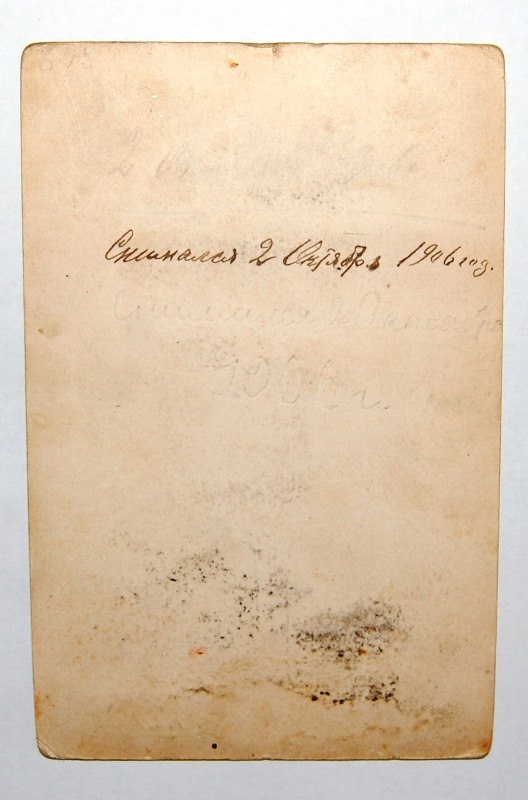 Снимался 2 Октября 1906 год.
Снимался 2 Октября
1906 г.